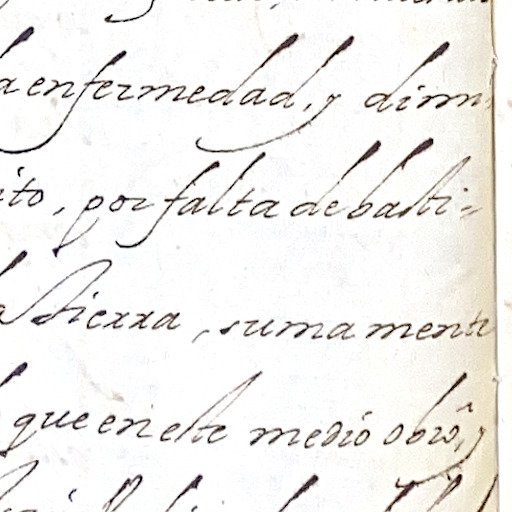 a enfermedad, y dimi
ito, por falta de basti=
a Sierra, sumamente
que en este medió obró, y